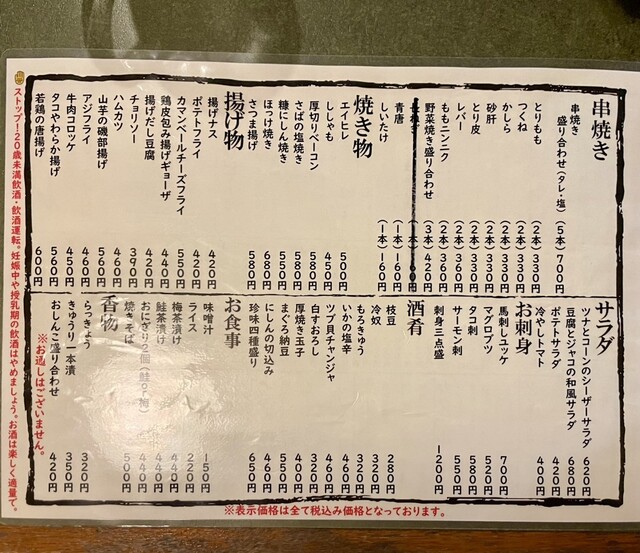 串焼き
串焼き
盛り合わせ(タレ・塩)(5本)700円
とりもも(2本)330円
つくね(2本)330円
かしら(2本)330円
砂肝(2本)330円
とり皮(2本)330円
レバー(2本)360円
ももニンニク(2本)360円
野菜焼き盛り合わせ(3本)420円
青唐(1本)160円
しいたけ(1本)160円
焼き物
エイヒレ500円
ししゃも450円
厚切りベーコン580円
さばの塩焼き550円
糠にしん焼き550円
ほっけ焼き680円
さつま揚げ580円
揚げ物
揚げナス420円
ポテトフライ420円
カマンベールチーズフライ550円
鶏皮包み揚げギョーザ420円
揚げだし豆腐440円
チョリソー390円
ハムカツ460円
山芋の磯部揚げ560円
アジフライ460円
牛肉コロッケ450円
タコやわらか揚げ560円
若鶏の唐揚げ600円
サラダ
ツナとコーンのシーザーサラダ620円
豆腐とジャコの和風サラダ680円
ポテトサラダ420円
冷やしトマト400円
お刺身
馬刺しユッケ700円
マグロブツ520円
タコ刺580円
サーモン刺550円
刺身三点盛1200円
酒肴
枝豆280円
冷奴320円
もろきゅう320円
いかの塩辛460円
ツブ貝チャンジャ460円
白すおろし320円
厚焼き玉子400円
まぐろ納豆550円
にしんの切込み460円
珍味四種盛り650円
お食事
味噌汁150円
ライス220円
梅茶漬け440円
鮭茶漬け440円
おにぎり2個(鮭or梅)440円
焼きそば500円
香物
らっきょう320円
きゅうり一本漬350円
おしんこ盛り合わせ420円
※お通しはございません。
ストップ!20歳未満飲酒・飲酒運転。妊娠中や授乳期の飲酒はやめましょう。お酒は楽しく適量で。
※表示価格は全て税込み価格となっております。